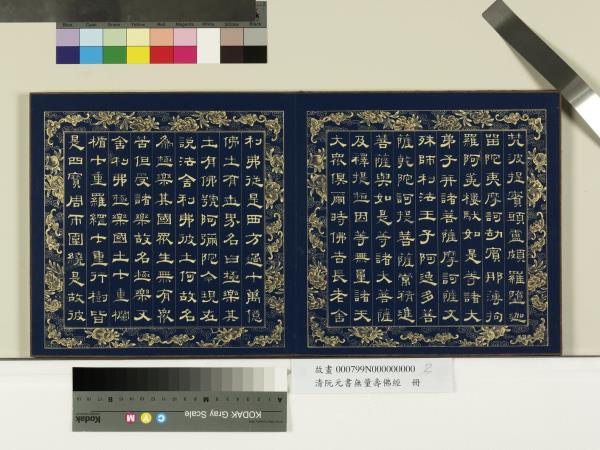 Blue Cyan Green Yellow Red Magenta White 3/Color Black
梵波提賓頭盧頗羅墮迦
留陀夷摩訶劫賓那薄拘
羅阿㝹樓馱如是等諸大
弟子并諸菩薩摩訶薩文
殊師利法王子阿逸多菩
薩乾陀訶提菩薩常精進
菩薩與如是等諸大菩薩
及釋提桓因等無量諸天
大眾俱爾時佛告長老舍
利弗從是西方過十萬億
佛土有世界名曰極樂其
土有佛號阿彌陀今現在
說法舍利弗彼土何故名
為極樂其國眾生無有眾
苦但受諸樂故名極樂又
舍利弗極樂國土七重欄
楯七重羅網七重行樹皆
是四寶周帀圍繞是故彼
故畫 000799N000000000 2
清阮元書無量壽佛經 冊
KODAK Gray Scale
C Y M
Kodak